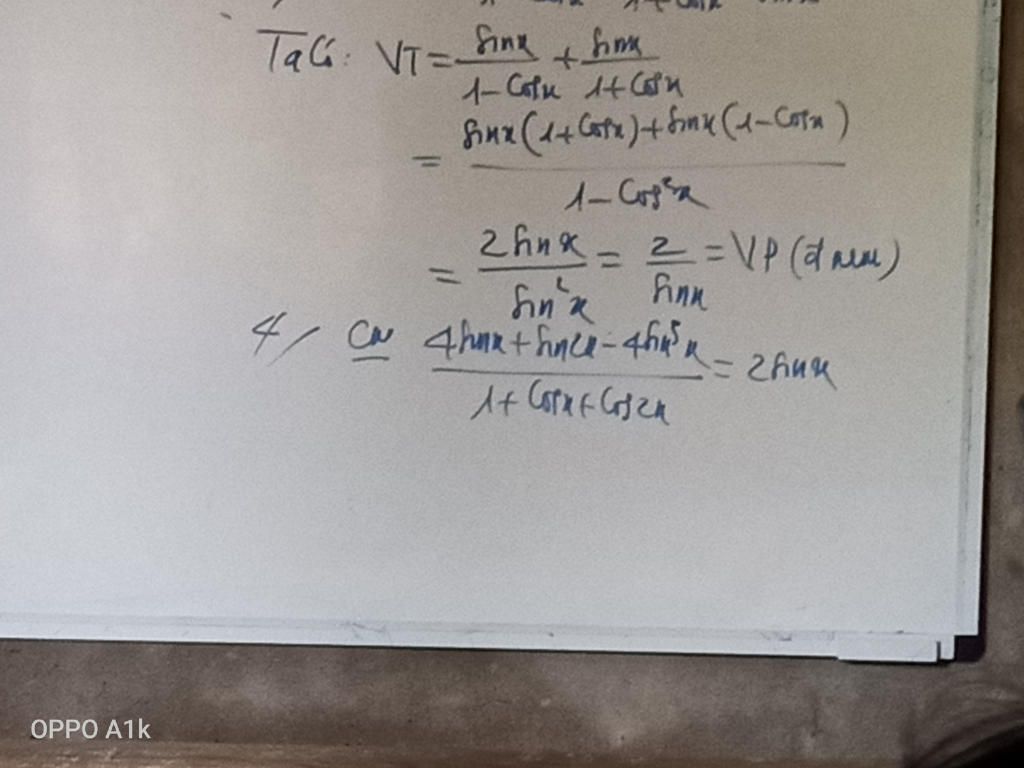 Ta Có: VT = sinx/(1 - Cosx) + sinx/(1 + Cosx)
= (sinx(1 + Cosx) + sinx(1 - Cosx))/(1 - Cos²x)
= 2 sinx/sin²x = 2/sinx = VP (đ
4/ CM (4 sinx + sin2x - 4 sin³x)/(1 + Cosx + Cos2x) = 2 sinx
OPPO A1k